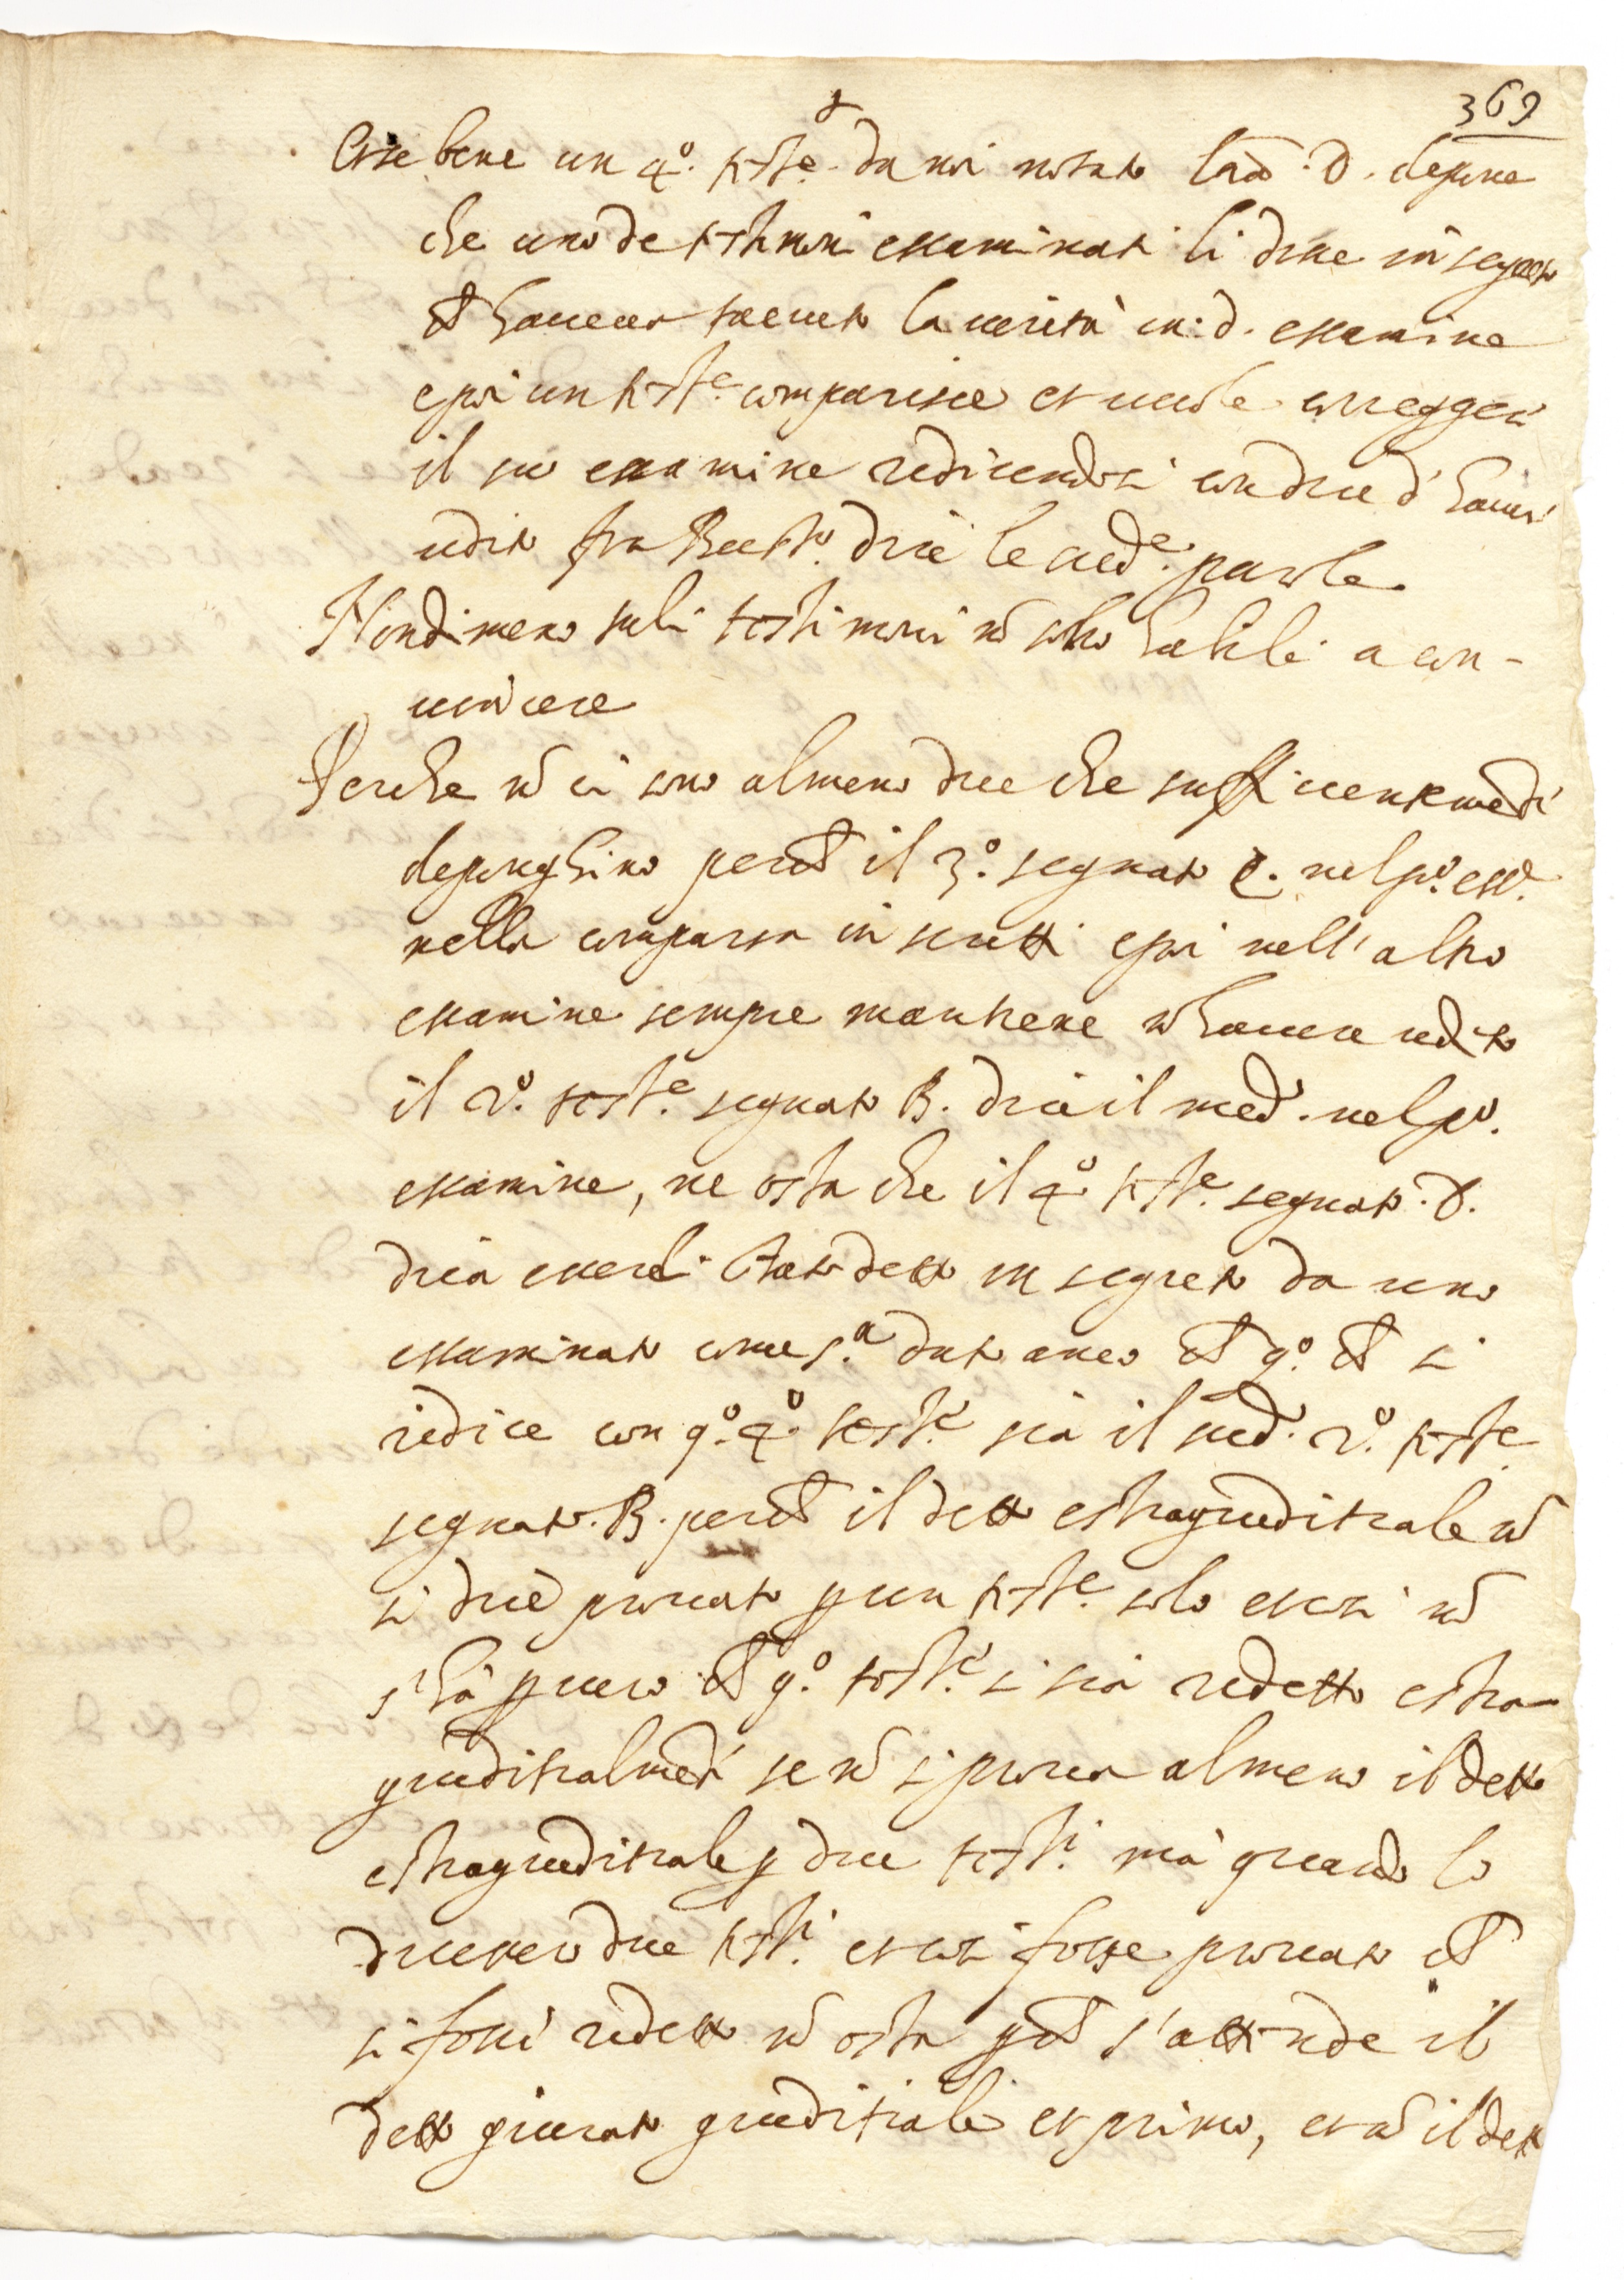 369
E se bene un 4.º test.e da noi notato lrã D. depone
che uno de testimoni essaminati li disse in segreto
hauer taciuto la uerità in d. essamine
e poi un test.e comparisce et uuole corregger
il suo essamine redicendosi con dire d'hauer
udito fra Batt.ª dire le med.e parole
Nondimeno tali testimoni nõ sono habili a con-
uincere
Perche nõ ci sono almeno due che sufficientemẽti
deponghino il 3.º segnato C. nel p.º ess.e
nella comparsa in scritti e poi nell'altro
essamine sempre mantiene nõ hauere udito
il 2.º test.e segnato B. dice il med.º nel p.º
essamine, ne osta che il 4.º test.e segnato .D.
dica esserli stato detto in segreto da uno
essaminato come s.ª dato anco q.º si
redice con q.º 4.º test.e sia il sud.º 2.º test.e
segnato .B. il detto estragiuditiale nõ
si dice prouato p un test.e solo et cosi nõ
s'hà p uero q.º test.e si sia redetto estra-
giuditialmẽte se nõ si proua almeno il detto
estragiuditiale p due test.i mà quando lo
dicessero due test.i et cosi fosse prouato
si fosse redetto nõ osta s'attende il
detto giurato giuditiale et primo, et nõ il detto